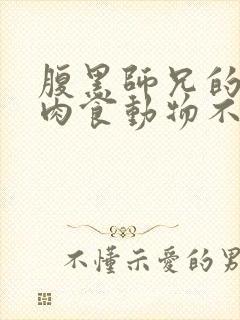 腹黑師兄的
肉食動物不
不懂示愛的男